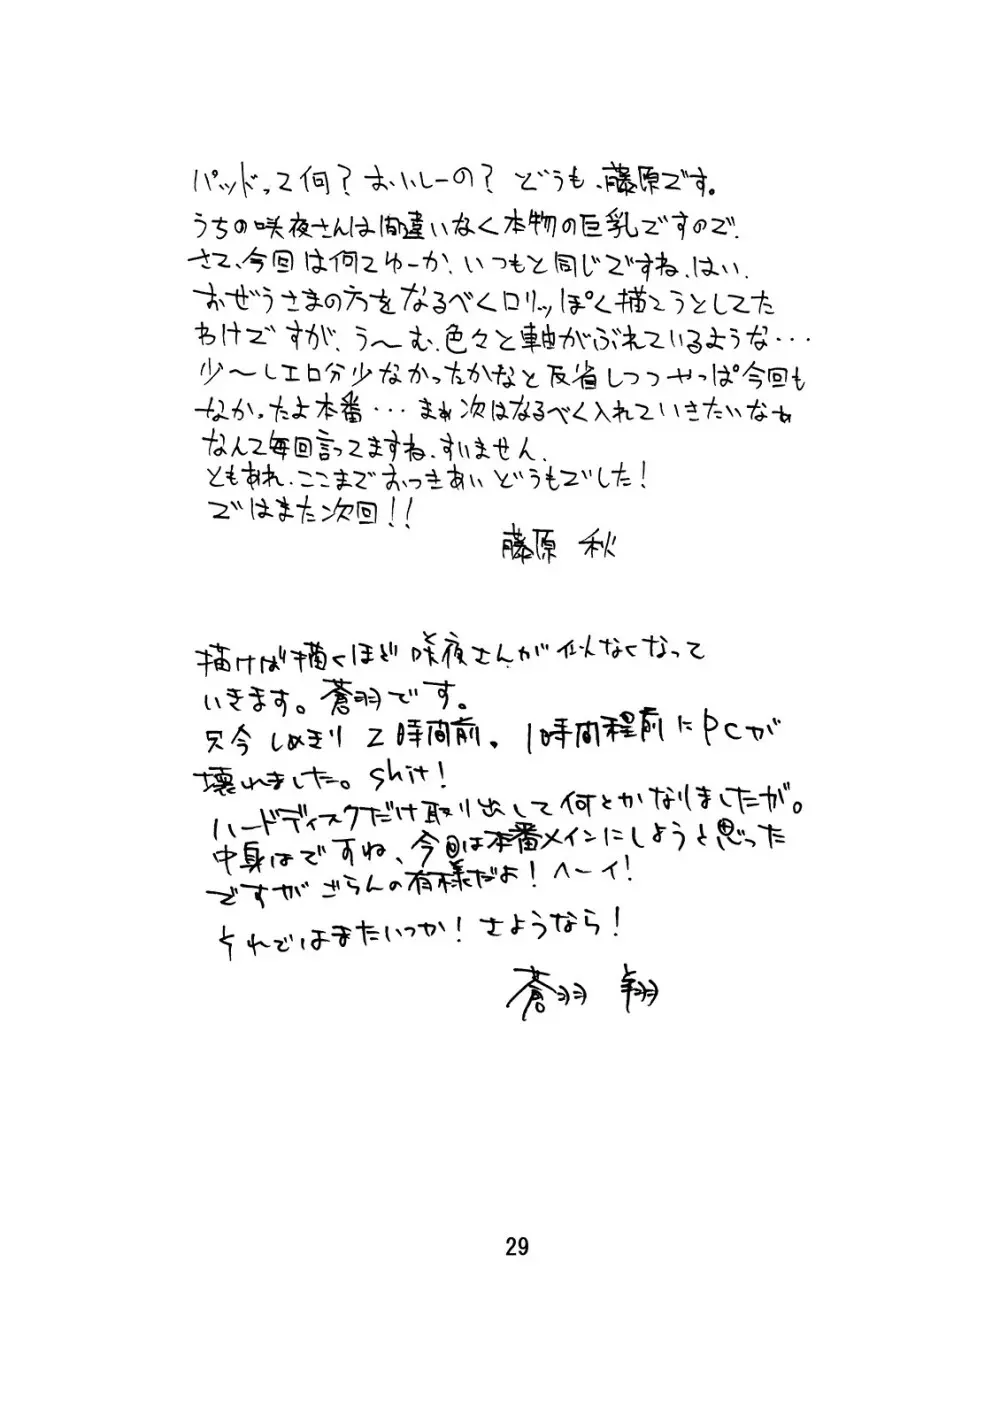 パッドって何？おいしーの？どうも、藤原です。
うちの咲夜さんは間違いなく本物の巨乳ですので、
さて、今回は何てゆーか、いつもと同じですね、はい、
おぜうさまの方をなるべくロリッぽく描こうとしてた
わけですが、う〜む、色々と軸がぶれているような・・・
少〜しエロ分少なかったかなと反省しつつやっぱ今回も
なかったよ本番・・・まぁ次はなるべく入れていきたいなぁ
なんて毎回言ってますね、すいません、
ともあれ、ここまでおつきあいどうもでした！
ではまた次回！！
藤原 秋
描けば描くほど咲夜さんが似なくなって
いきます。蒼羽です。
只今しめきり2時間前。1時間程前にPCが
壊れました。shit！
ハードディスクだけ取り出して何とかなりましたが。
中身はですね、今回は本番メインにしようと思った
ですがごらんの有様だよ！ヘーイ！
それではまたいつか！さようなら！
蒼羽 翔
29